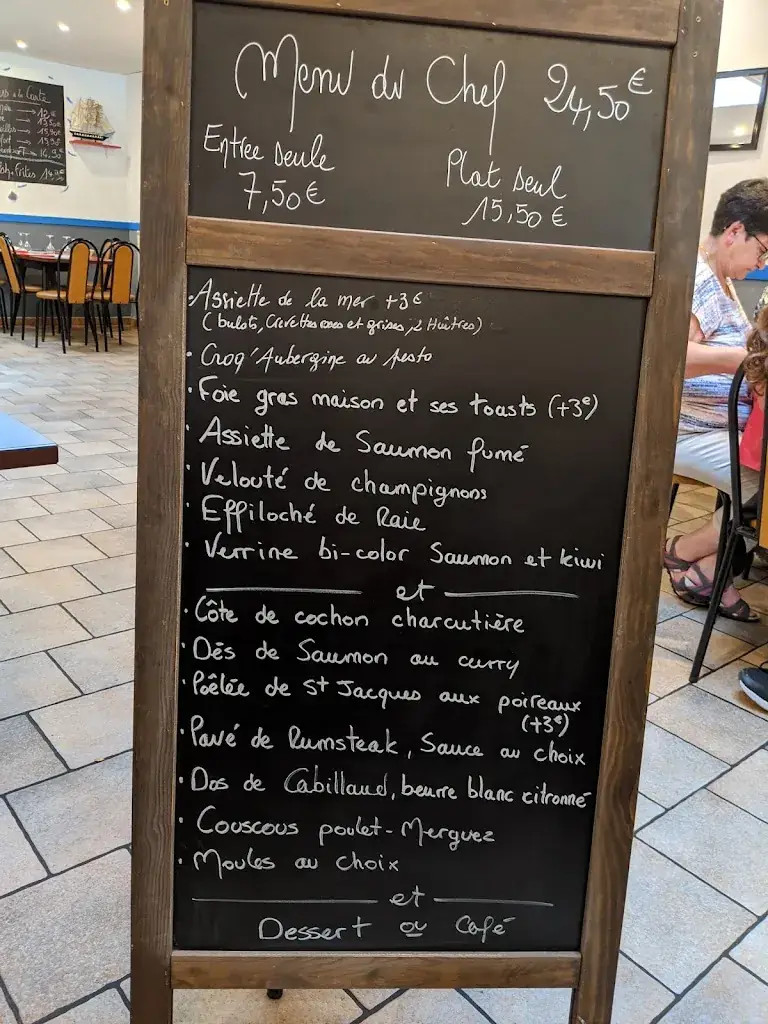 Menu du Chef 24,50€
Entrée seule
7,50€
Plat seul
15,50€
·Assiette de la mer +3€
(bulots, Crevettes roses et grises, 2 Huîtres)
· Croq'Aubergine au pesto
·Foie gras maison et ses toasts (+3€)
· Assiette de Saumon fumé
· Velouté de champignons
· Effiloché de Raie
· Verrine bi-color Saumon et kiwi
et
· Côte de cochon charcutière
· Dés de Saumon au curry
· Poêlée de St Jacques aux poireaux
(+3€)
· Pavé de Rumsteak, Sauce au choix
· Dos de Cabillaud, beurre blanc citronné
· Couscous poulet-Merguez
· Moules au choix
et
Dessert ou Café
la Carte
Frites